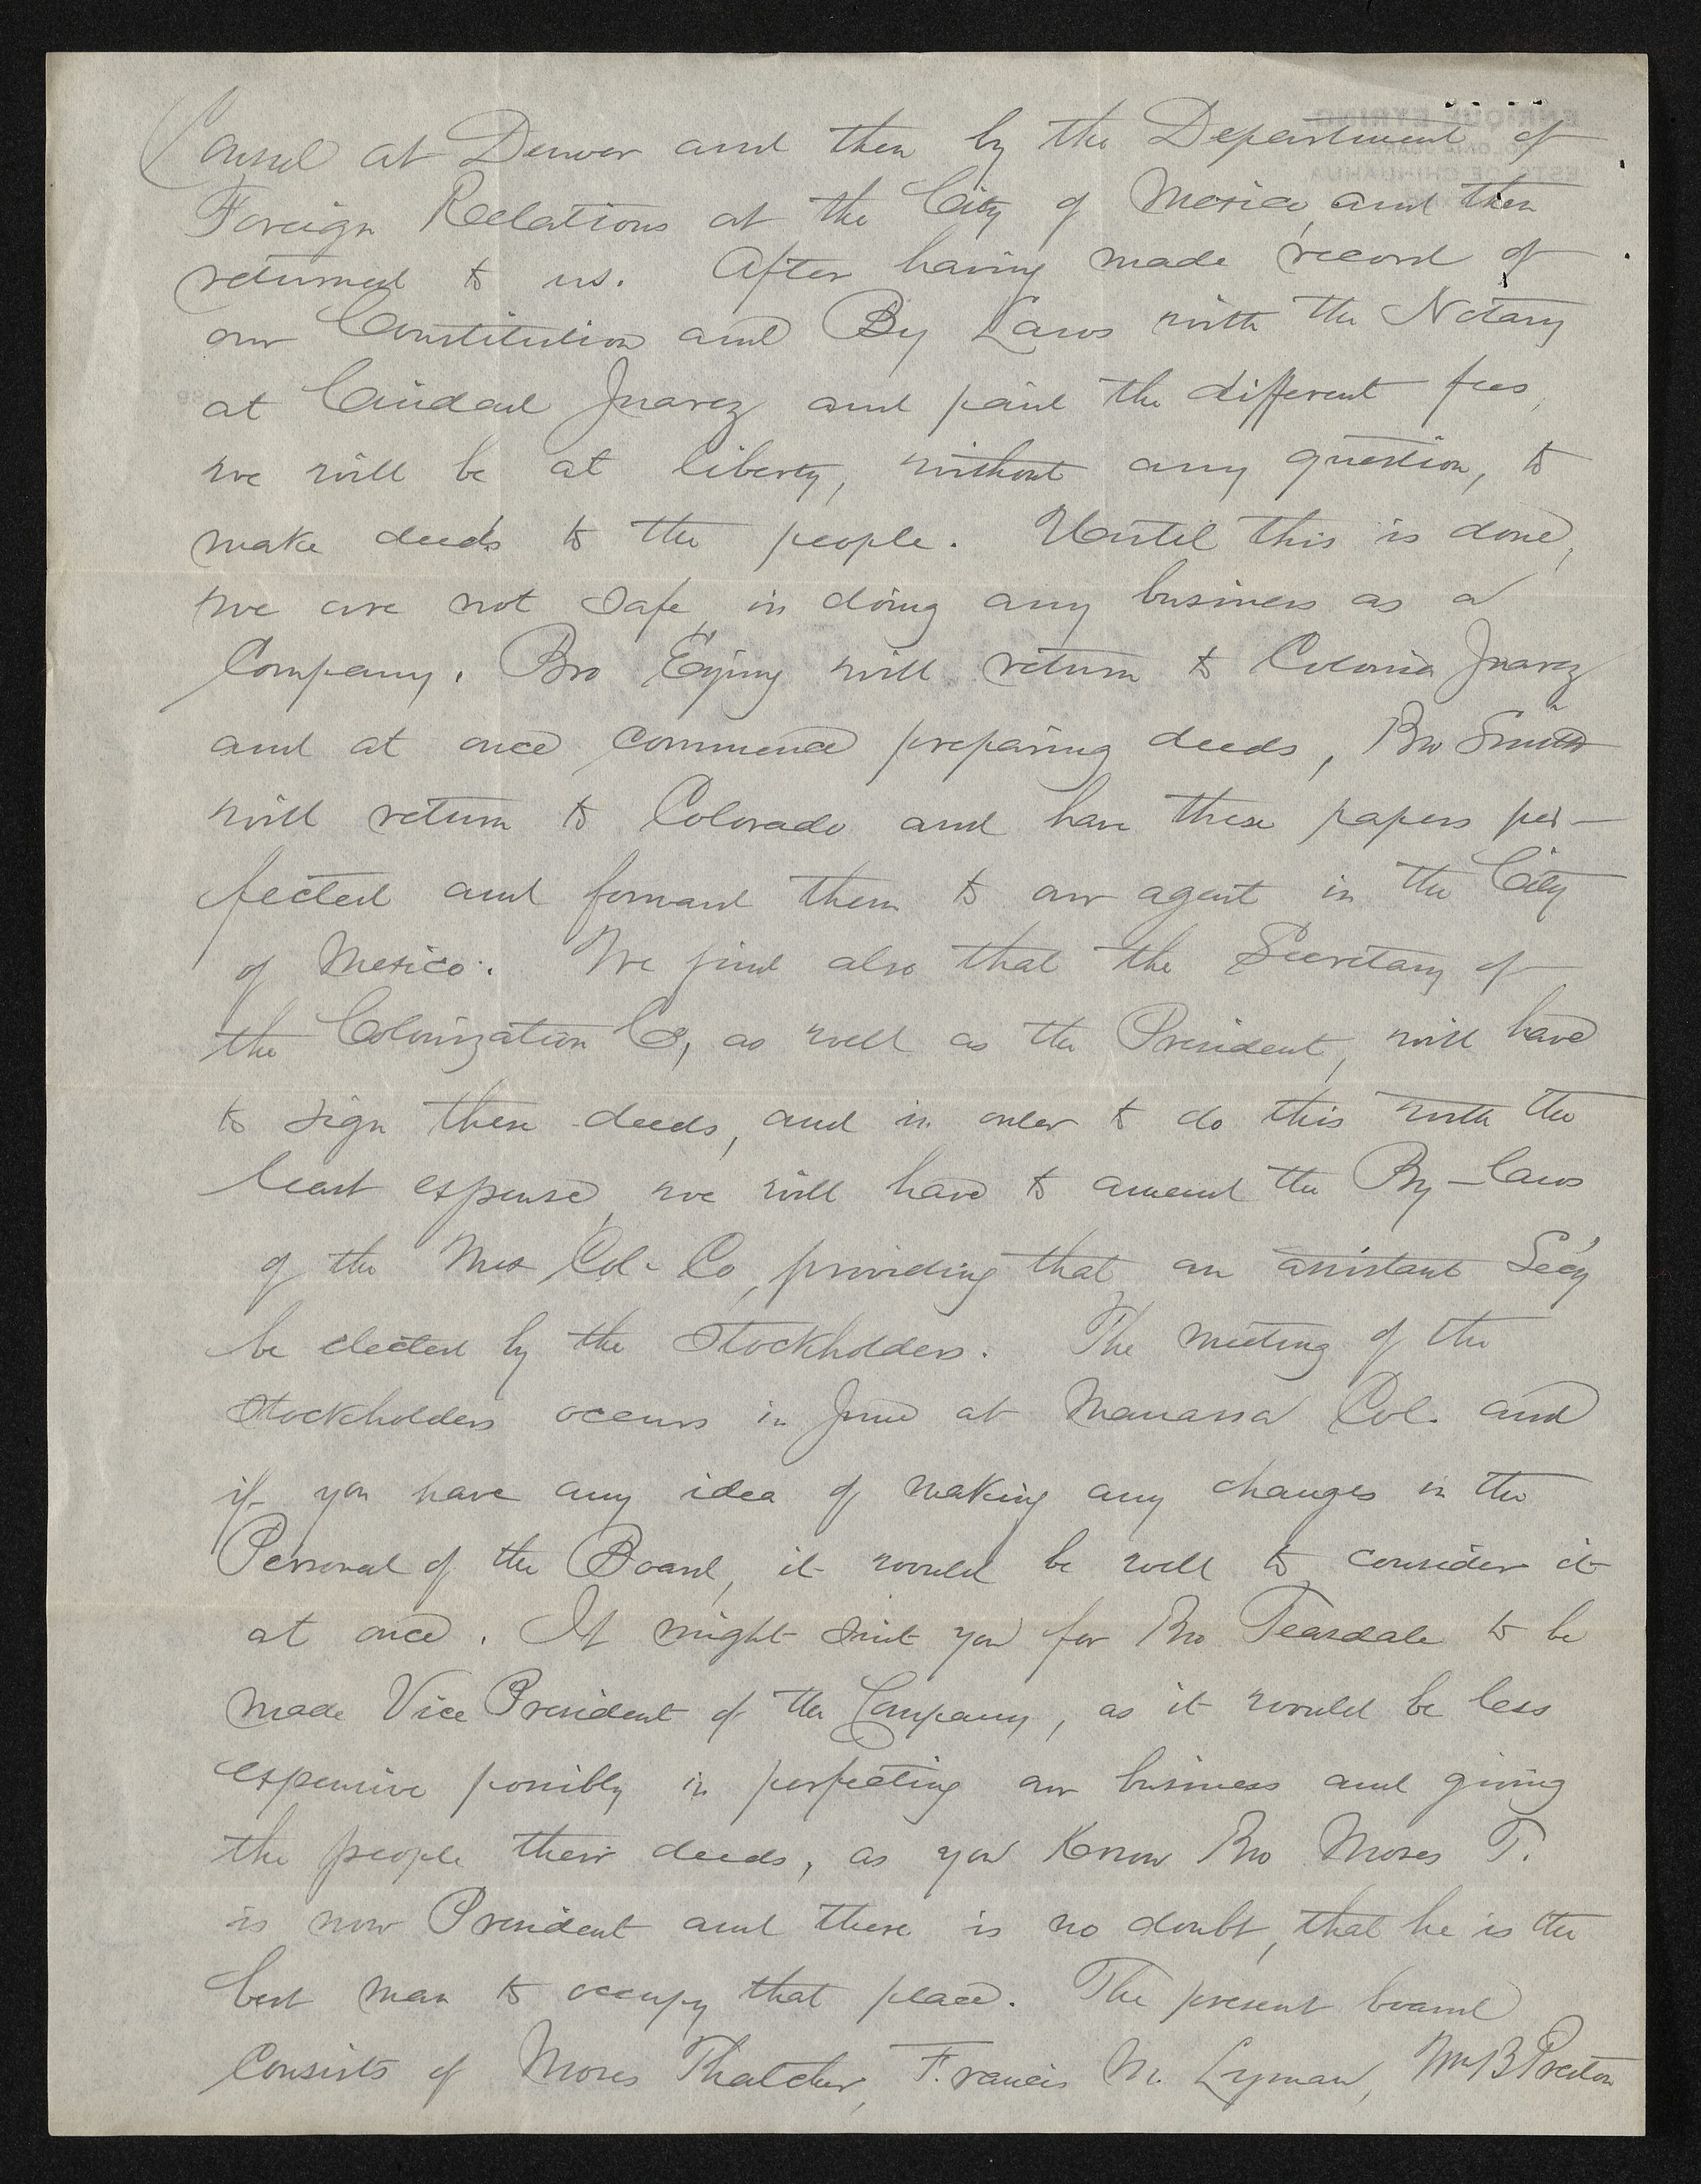 Consul at Denver and then by the Department of
Foreign Relations at the City of Mexico, and then
returned to us. After having made record of
our Constitution and By Laws with the Notary
at Ciudad Juarez and paid the different fees,
we will be at liberty, without any question, to
make deeds to the people. Until this is done,
we are not safe, in doing any business as a
Company. Bro Eyring will return to Colonia Juarez
and at once commence preparing deeds, Bro Smith
will return to Colorado and have these papers per-
fected and forward them to our agent in the City
of Mexico. We find also that the Secretary of
the Colonization Co, as well as the President, will have
to sign these deeds, and in order to do this with the
least expense, we will have to amend the By-Laws
of the Mex Col. Co, providing that an assistant Sec'y
be elected by the Stockholders. The meeting of the
Stockholders occurs in June at Manassa Col. and
if you have any idea of making any changes in the
Personal of the Board, it would be well to consider it
at once. It might suit you for Bro Teasdale to be
made Vice President of the Company, as it would be less
expensive possibly in perfecting our business and giving
the people their deeds, as you Know Bro Moses T.
is now President and there is no doubt, that he is the
best man to occupy that place. The present board
Consists of Moses Thatcher, Francis M. Lyman, Wm B Preston